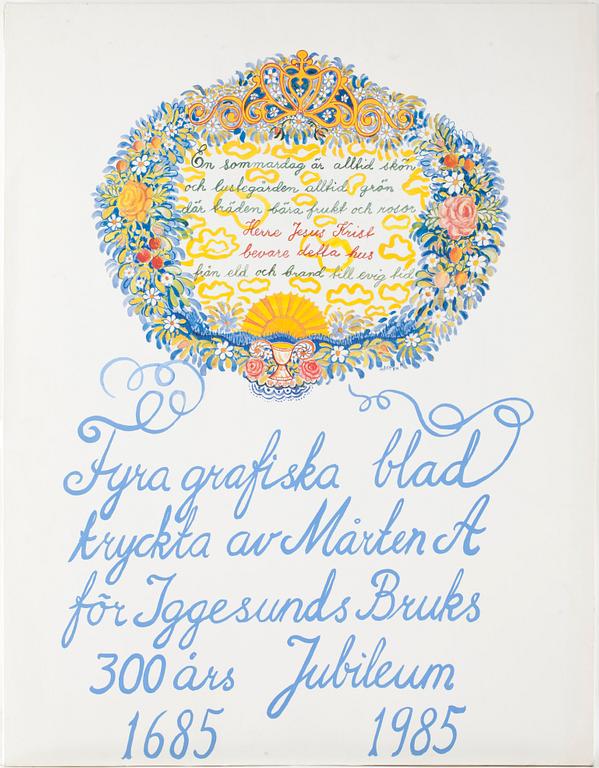 En sommardag är alltid skön
och lustegården alltid grön
där träden bära frukt och rosor
Herre Jesus Krist
bevare detta hus
från eld och brand till evig tid
Fyra grafiska blad
tryckta av Mårten A
för Iggesunds Bruks
300 års Jubileum
1685 1985